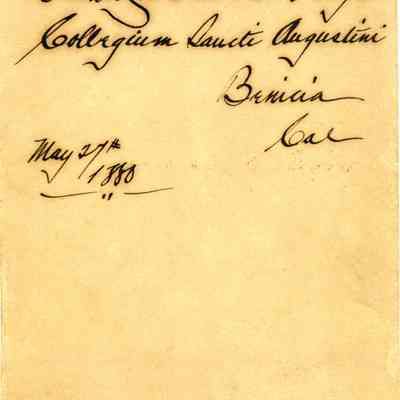 Collegium Sancti Augustini
Benicia
Cal
May 27th
1880